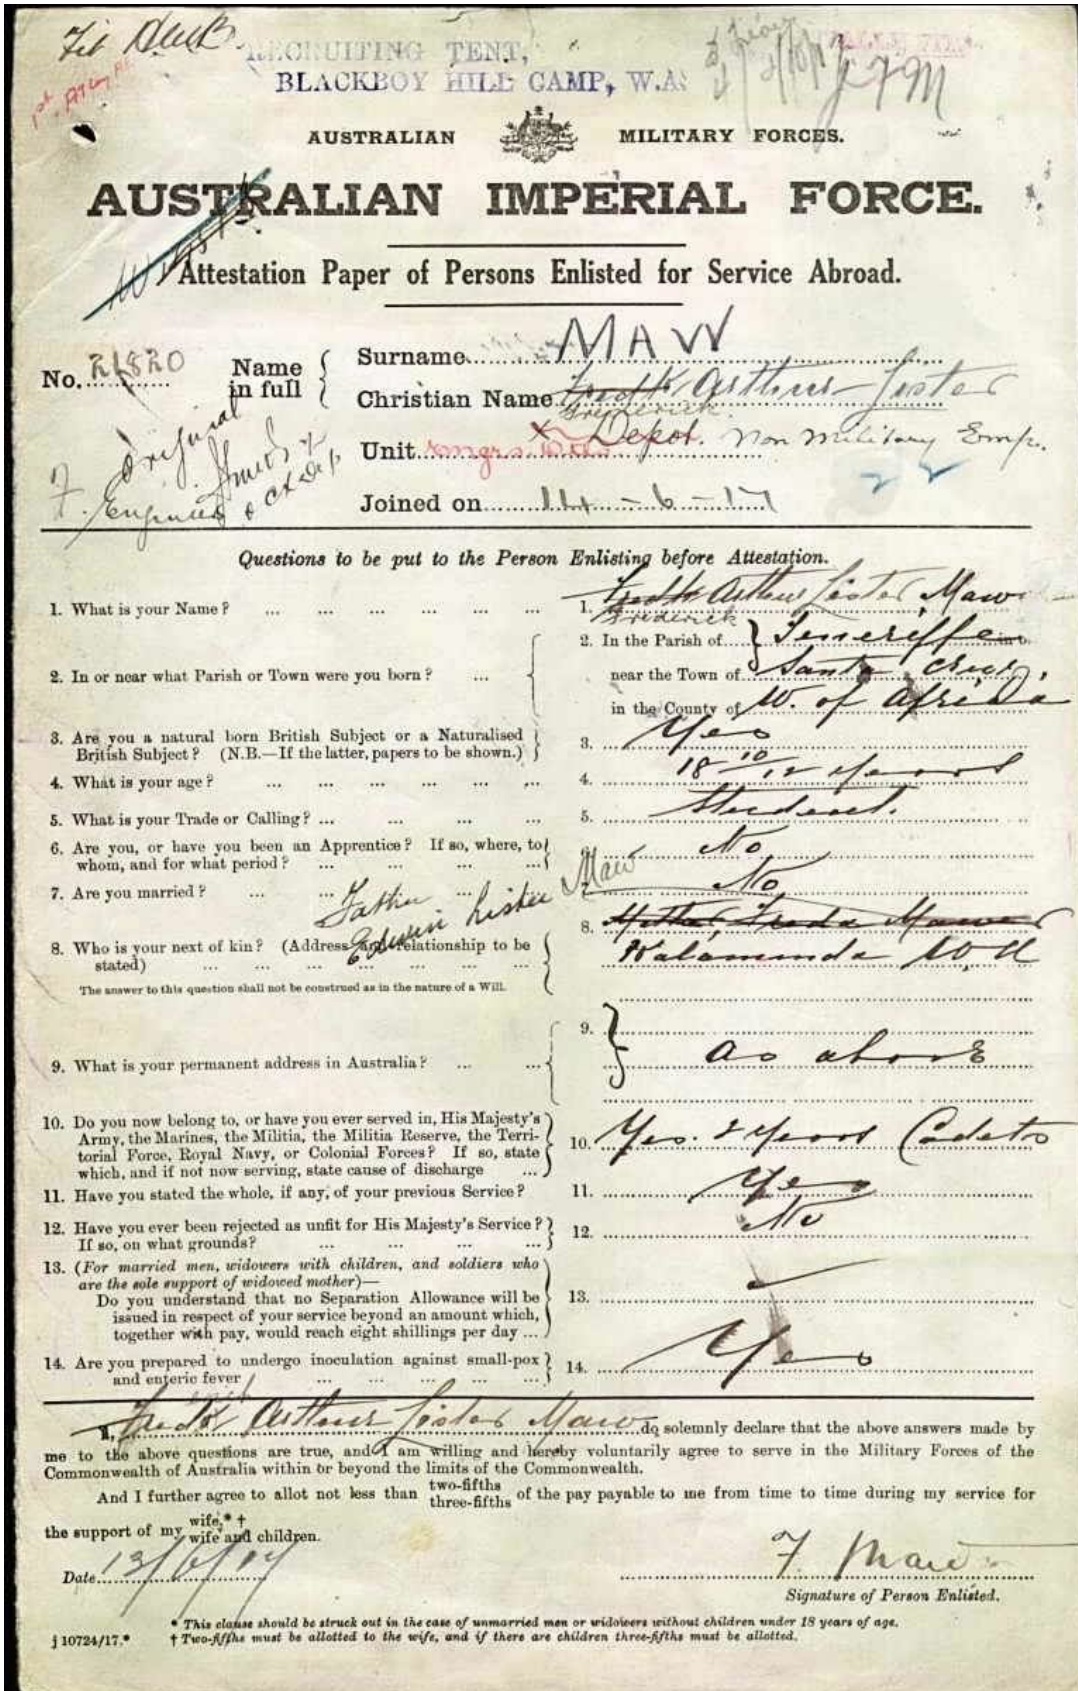 RECRUITING TENT,
BLACKBOY HILL CAMP, W.A.
AUSTRALIAN MILITARY FORCES.
AUSTRALIAN IMPERIAL FORCE.
Attestation Paper of Persons Enlisted for Service Abroad.
No. 21820 Name in full { Surname MAW
Christian Name Fredk Arthur Lister
Frederick
Unit Engrs. Depot. Non Military Emp.
Original
Engineers
22
Joined on 14-6-17
Questions to be put to the Person Enlisting before Attestation.
1. What is your Name? ... 1. Fredk Arthur Lister Maw
Frederick
2. In or near what Parish or Town were you born? ... 2. In the Parish of Teneriffe
near the Town of Santa Cruz,
in the County of W. of Africa
3. Are you a natural born British Subject or a Naturalised
British Subject? (N.B.—If the latter, papers to be shown.) 3. Yes
4. What is your age? ... 4. 18 10/12 years
5. What is your Trade or Calling? ... 5. Student.
6. Are you, or have you been an Apprentice? If so, where, to
whom, and for what period? ... 6. No
7. Are you married? ... 7. No
Father Edwin Lister Maw
8. Who is your next of kin? (Address and relationship to be
stated) ... 8. Mother, Freda Mawe
Kalamunda W.A
The answer to this question shall not be construed as in the nature of a Will.
9. What is your permanent address in Australia? ... 9. as above
10. Do you now belong to, or have you ever served in, His Majesty's
Army, the Marines, the Militia, the Militia Reserve, the Terri-
torial Force, Royal Navy, or Colonial Forces? If so, state
which, and if not now serving, state cause of discharge ... 10. Yes. 2 years Cadets
11. Have you stated the whole, if any, of your previous Service? 11. Yes
12. Have you ever been rejected as unfit for His Majesty's Service?
If so, on what grounds? ... 12. No
13. (For married men, widowers with children, and soldiers who
are the sole support of widowed mother)—
Do you understand that no Separation Allowance will be
issued in respect of your service beyond an amount which,
together with pay, would reach eight shillings per day ... 13.
14. Are you prepared to undergo inoculation against small-pox
and enteric fever ... 14. Yes
I, Fredk Arthur Lister Maw do solemnly declare that the above answers made by
me to the above questions are true, and I am willing and hereby voluntarily agree to serve in the Military Forces of the
Commonwealth of Australia within or beyond the limits of the Commonwealth.
And I further agree to allot not less than two-fifths three-fifths of the pay payable to me from time to time during my service for
the support of my wife,* † wife and children.
Date 13/6/17 F. Maw
Signature of Person Enlisted.
* This clause should be struck out in the case of unmarried men or widowers without children under 18 years of age.
j 10724/17.* † Two-fifths must be allotted to the wife, and if there are children three-fifths must be allotted.